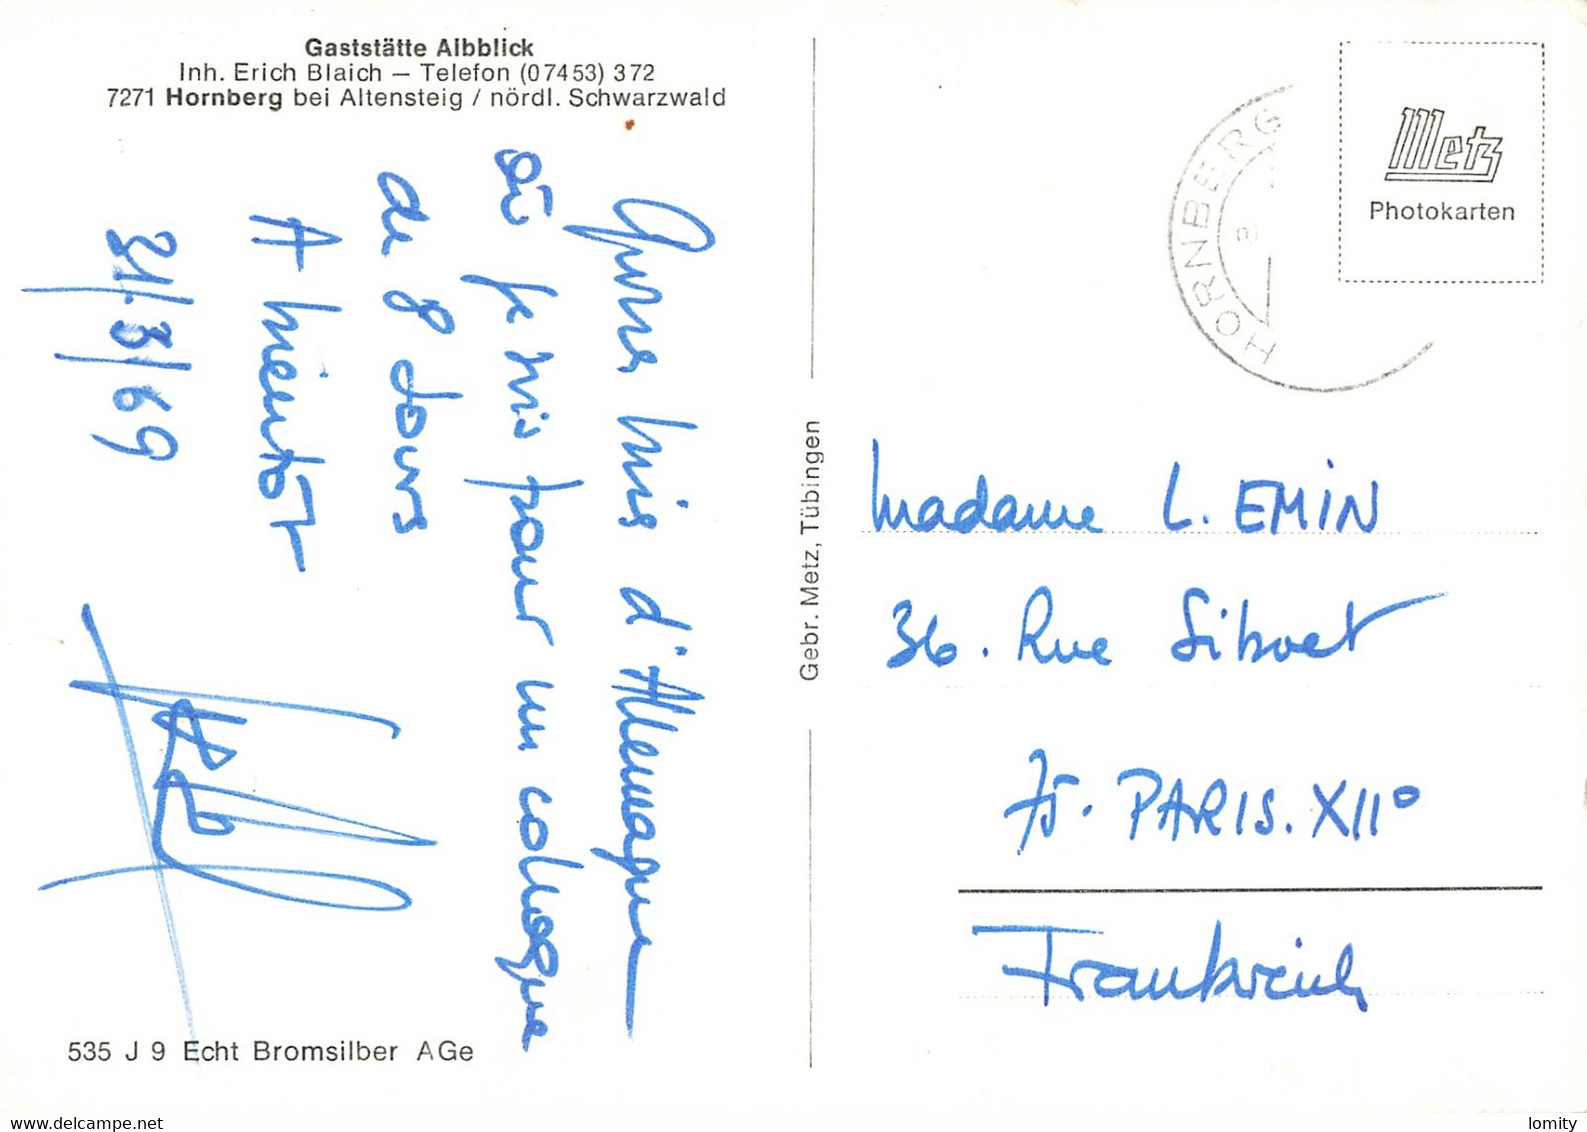 Gaststätte Albblick
Inh. Erich Blaich — Telefon (07453) 372
7271 Hornberg bei Altensteig / nördl. Schwarzwald
d'Allemagne
où je suis pour un colloque
de 8 jours
A bientôt
21/3/69
535 J 9 Echt Bromsilber AGe
Gebr. Metz, Tübingen
HORNBERG
a
Metz
Photokarten
Madame L. EMIN
36. Rue Sibuet
75. PARIS. XII°
Frankreich
www.delcampe.net
lomity